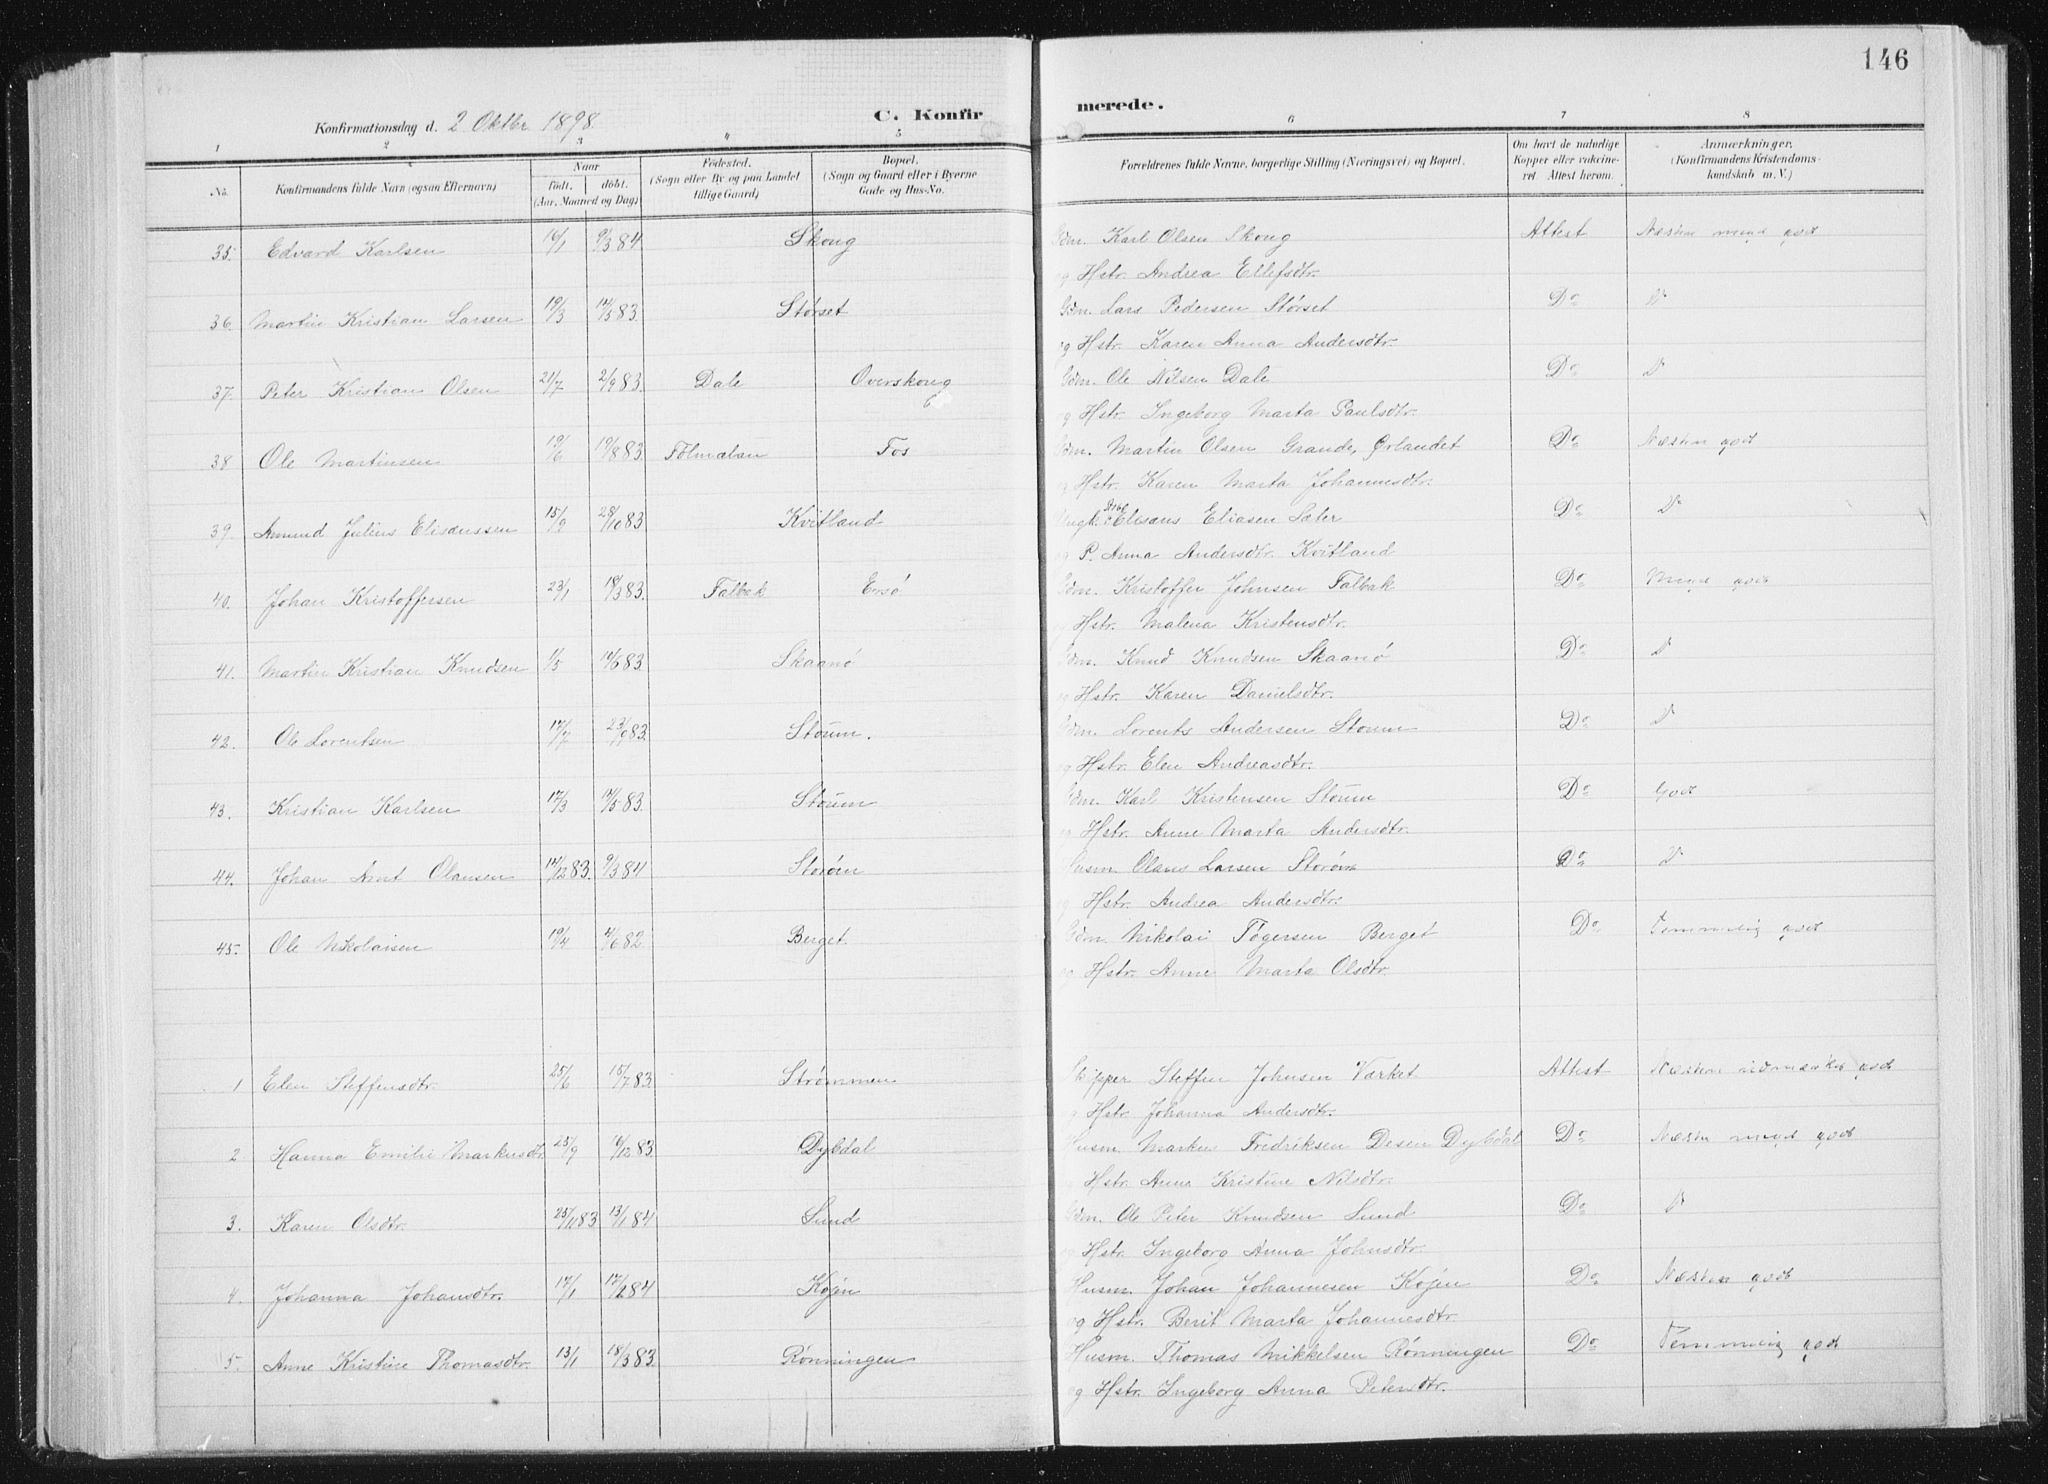 146
Konfirmationsdag d. 2 Oktbr. 1898.
C. Konfirmerede.
1 2 3 4 5 6 7 8
No. Konfirmandens fulde Navn (ogsaa Efternavn) Naar født. døbt. (Aar, Maaned og Dag) Fødested. (Sogn eller By og paa Landet tillige Gaard) Bopæl. (Sogn og Gaard eller i Byerne Gade og Hus-No. Forældrenes fulde Navne, borgerlige Stilling (Næringsvei) og Bopæl. Om havt de naturlige Kopper eller vakcineret. Attest herom. Anmærkninger. (Konfirmandens Kristendomskundskab m. V.)
35. Edvard Karlsen 16/1 9/3 84 Skoug Gdm. Karl Olsen Skoug Attest Næsten meget godt
og Hstr. Andrea Ellefsdtr.
36. Martin Kristian Larsen 19/3 14/5 83. Størset Gdm. Lars Pedersen Størset Do D
og Hstr. Karen Anna Andersdtr.
37. Peter Kristian Olsen 21/7 2/9 83. Dale Overskoug Gdm. Ole Nilsen Dale Do D
og Hstr. Ingeborg Marta Paulsdtr.
38 Ole Martinsen 19/6 19/8 83. Fos Gdm. Martin Olsen Grande, Ørlandet Do Næsten godt
og Hstr. Karen Marta Johannesdtr.
39. Amund Julius Elisæussen 15/9 28/10 83 Kvitland Ungk. Elisæus Eliasen Sæter Do D
og P. Anna Andersdtr. Kvitland
40. Johan Kristoffersen 23/1 18/3 83. Falbak Ersø Gdm. Kristoffer Johnsen Falbak Do Meget godt
og Hstr. Malena Kristensdtr.
41. Martin Kristian Knudsen 1/5 14/6 83 Skaanø Gdm. Knud Knudsen Skaanø Do D
og Hstr. Karen Danielsdtr.
42. Ole Lorentsen 17/7 Støum. Gdm. Lorents Andersen Støum Do D
og Hstr. Elen Andreasdtr.
43. Kristian Karlsen 17/3 14/5 83. Støum Gdm. Karl Kristensen Støum Do Godt
og Hstr. Anne Marta Andersdtr.
44. Johan Arnt Olausen 14/12 83. 9/3 84 Storøen Husm. Olaus Larsen Storøen Do D
og Hstr. Andrea Andersdtr.
45. Ole Nikolaisen 19/4 4/6 82 Berget. Gdm. Nikolai Tøgersen Berget Do. Temmelig godt
og Hstr. Anne Marta Olsdtr.
1 Elen Steffensdtr. 25/6 15/7 83. Strømmen Skipper Steffen Johnsen Værket Attest Næsten udmærket godt
og Hstr. Johanna Andersdtr.
2. Hanna Emilie Markusdtr. 25/9 16/12 83. Dybdal Husm. Markus Fridriksen Desen Dybdal Do Næsten meget godt
Hstr. Anne Kristine Nilsdtr.
3. Karen Olsdtr. 25/11 83 13/1 84 Sund Gdm. Ole Peter Knudsen Sund Do D
og Hstr. Ingeborg Anna Johnsdtr.
4. Johanna Johansdtr. 17/1 17/2 84 Køjen Husm. Johan Johannesen Køjen Do Næsten godt
og Hstr. Berit Marta Johannesdtr.
5. Anne Kristine Thomasdtr. 13/1 18/3 83. Rønningen Husm. Thomas Mikkelsen Rønningen Do Temmelig godt
og Hstr. Ingeborg Anna Petersdtr.